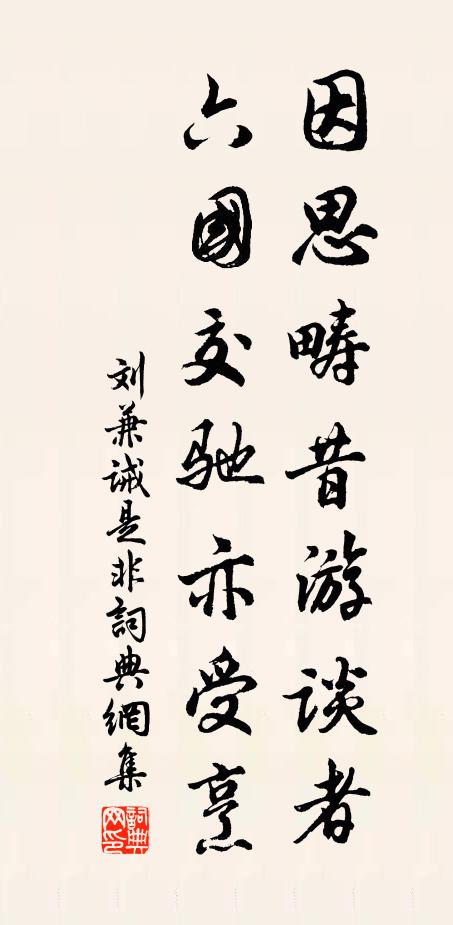 因思畴昔游谈者
六國交驰亦受烹
刘兼诫是非詞典網集
詞典网印